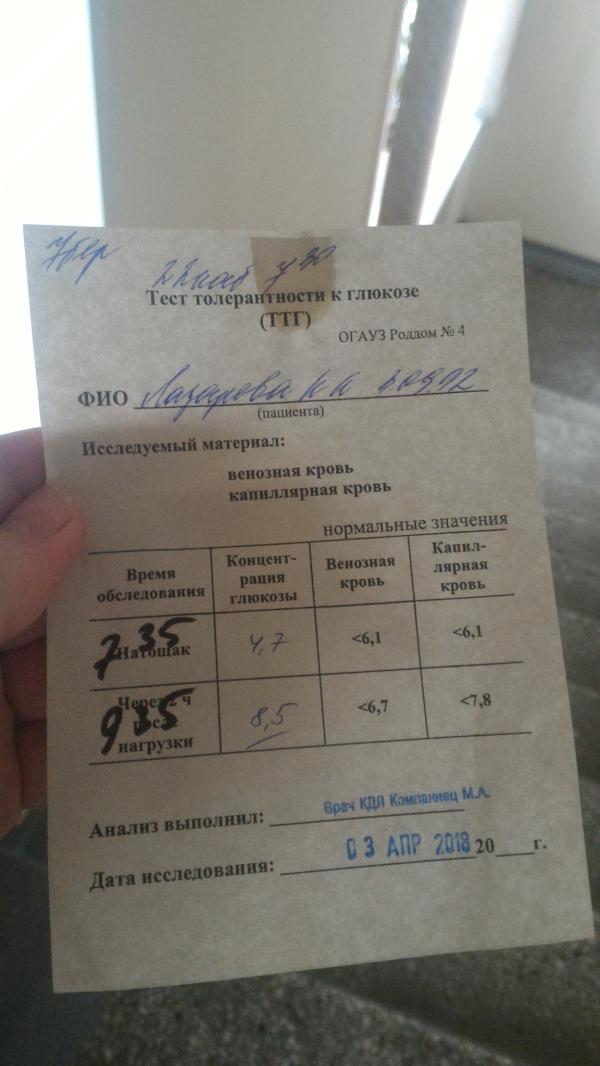 Тест толерантности к глюкозе
(ТТГ)
ОГАУЗ Роддом № 4
ФИО Лазарева
(пациента)
Исследуемый материал:
венозная кровь
капиллярная кровь
нормальные значения
Время обследования Концент-рация глюкозы Венозная кровь Капил-лярная кровь
7 35 Натощак 4,7 <6,1 <6,1
9 35 Через ч нагрузки 8,5 <6,7 <7,8
Анализ выполнил: Врач КДЛ Компаниец М.А.
Дата исследования: 03 АПР 2018 20 г.